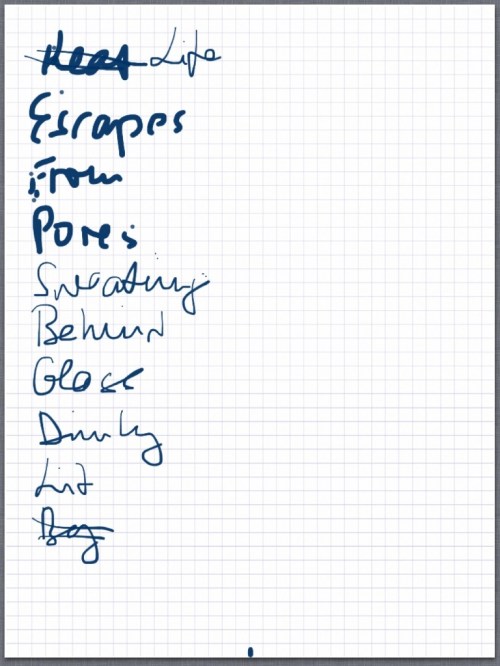 Heat Life
Escapes
From
Pores
Sweating
Behind
Glass
Dimly
Lit
By